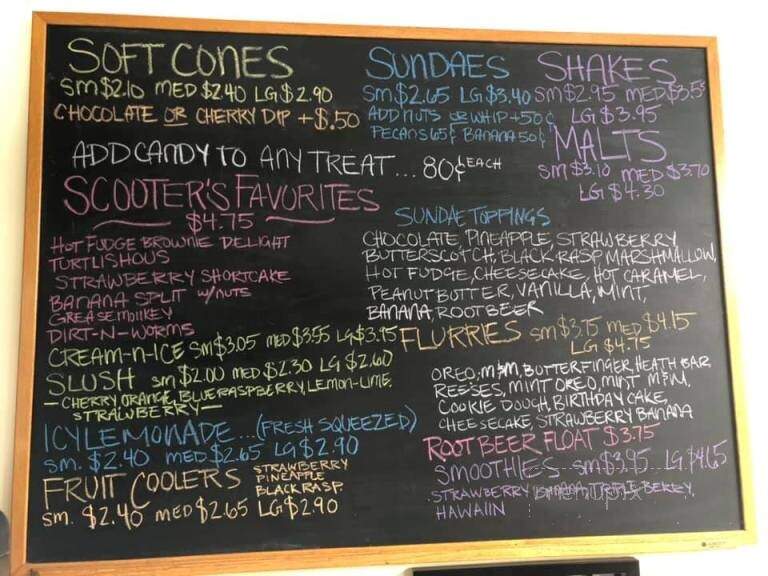 SOFT CONES
SM $2.10 MED $2.40 LG $2.90
CHOCOLATE OR CHERRY DIP +$.50
SUNDAES
SM $2.65 LG $3.40
ADD NUTS OR WHIP +50¢
PECANS 65¢ BANANA 50¢
SHAKES
SM $2.95 MED $3.55
LG $3.95
MALTS
SM $3.10 MED $3.70
LG $4.30
ADD CANDY TO ANY TREAT... 80¢ EACH
SCOOTER'S FAVORITES
$4.75
HOT FUDGE BROWNIE DELIGHT
TURTLISHOUS
STRAWBERRY SHORTCAKE
BANANA SPLIT W/NUTS
GREASE MONKEY
DIRT-N-WORMS
SUNDAE TOPPINGS
CHOCOLATE, PINEAPPLE, STRAWBERRY
BUTTERSCOTCH, BLACK RASP MARSHMALLOW,
HOT FUDGE, CHEESECAKE, HOT CARAMEL,
PEANUT BUTTER, VANILLA, MINT,
BANANA, ROOTBEER
CREAM-N-ICE SM $3.05 MED $3.55 LG $3.75
SLUSH SM $2.00 MED $2.30 LG $2.60
- CHERRY, ORANGE, BLUE RASPBERRY, LEMON-LIME,
STRAWBERRY -
FLURRIES SM $3.75 MED $4.15
LG $4.75
OREO, M&M, BUTTERFINGER, HEATH BAR,
REESES, MINT OREO, MINT M&M,
COOKIE DOUGH, BIRTHDAY CAKE,
CHEESECAKE, STRAWBERRY BANANA
ICY LEMONADE...(FRESH SQUEEZED)
SM. $2.40 MED $2.65 LG $2.90
ROOT BEER FLOAT $3.75
FRUIT COOLERS
STRAWBERRY
PINEAPPLE
BLACK RASP.
SM. $2.40 MED $2.65 LG $2.90
SMOOTHIES SM $3.95 LG. $4.65
STRAWBERRY BANANA, TRIPLE BERRY,
HAWAIIN
menupix